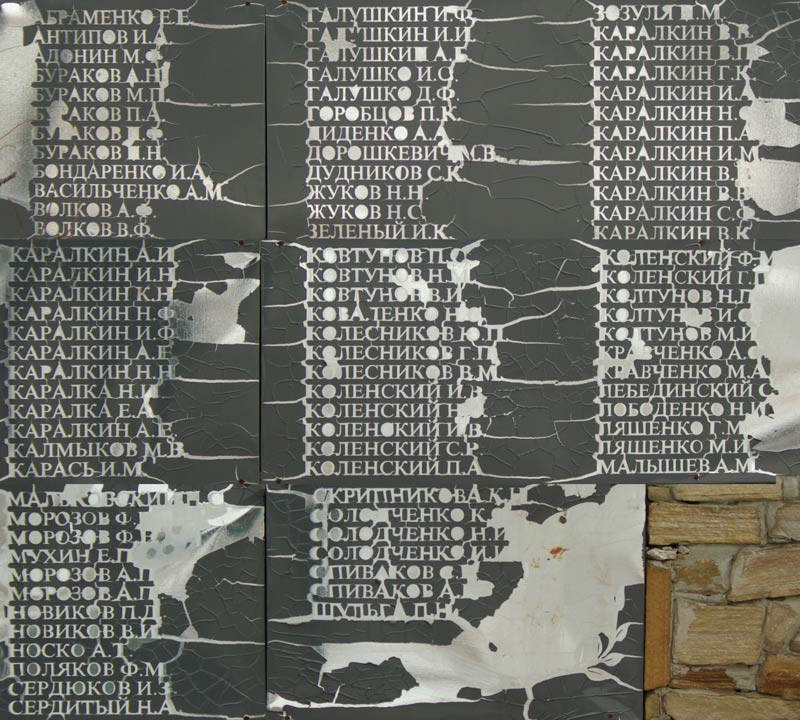 АБРАМЕНКО Е.Е.
АНТИПОВ И.А.
АДОНИН М.Ф.
БУРАКОВ А.Н.
БУРАКОВ М.П.
БУРАКОВ П.А.
БУРАКОВ П.Ф.
БУРАКОВ П.Н.
БОНДАРЕНКО И.А.
ВАСИЛЬЧЕНКО А.М.
ВОЛКОВ А.Ф.
ВОЛКОВ В.Ф.
ГАЛУШКИН И.Ф.
ГАЛУШКИН И.И.
ГАЛУШКИН А.Г.
ГАЛУШКО И.С.
ГАЛУШКО Д.Ф.
ГОРОБЦОВ П.К.
ДИДЕНКО А.А.
ДОРОШКЕВИЧ М.В.
ДУДНИКОВ С.К.
ЖУКОВ Н.Н.
ЖУКОВ Н.С.
ЗЕЛЕНЫЙ И.К.
ЗОЗУЛЯ И.М.
КАРАЛКИН В.В.
КАРАЛКИН В.Г.
КАРАЛКИН Г.К.
КАРАЛКИН И.
КАРАЛКИН Н.
КАРАЛКИН П.А.
КАРАЛКИН И.М.
КАРАЛКИН В.
КАРАЛКИН В.
КАРАЛКИН С.Ф.
КАРАЛКИН В.К.
КАРАЛКИН А.И.
КАРАЛКИН И.Н.
КАРАЛКИН К.Н.
КАРАЛКИН Н.Ф.
КАРАЛКИН И.Ф.
КАРАЛКИН А.Е.
КАРАЛКИН Н.Н.
КАРАЛКА Н.К.
КАРАЛКА Е.А.
КАРАЛКИН А.Е.
КАЛМЫКОВ М.В.
КАРАСЬ И.М.
КОВТУНОВ П.О.
КОВТУНОВ Н.М.
КОВТУНОВ В.И.
КОВАЛЕНКО Н.
КОЛЕСНИКОВ Ю.П.
КОЛЕСНИКОВ Г.П.
КОЛЕСНИКОВ В.М.
КОЛЕНСКИЙ И.
КОЛЕНСКИЙ Н.
КОЛЕНСКИЙ И.В.
КОЛЕНСКИЙ С.Р.
КОЛЕНСКИЙ П.А.
КОЛЕНСКИЙ Ф.М.
КОЛЕНСКИЙ Г.
КОЛТУНОВ Н.П.
КОЛТУНОВ И.С.
КОЛТУНОВ М.И.
КРАВЧЕНКО А.С.
КРАВЧЕНКО М.А.
ЛЕБЕДИНСКИЙ С.
ЛОБОДЕНКО Н.И.
ЛЯШЕНКО Г.М.
ЛЯШЕНКО М.И.
МАЛЫШЕВ А.М.
МОРОЗОВ Ф.
МОРОЗОВ Ф.
МУХИН Е.П.
МОРОЗОВ А.П.
МОРОЗОВ А.П.
НОВИКОВ П.Д.
НОВИКОВ В.И.
НОСКО А.Т.
ПОЛЯКОВ Ф.М.
СЕРДЮКОВ И.З.
СЕРДИТЫЙ Н.А.
СКРИПНИКОВА К.Н.
СОЛОДЧЕНКО К.
СОЛОДЧЕНКО Н.И.
СОЛОДЧЕНКО И.И.
СПИВАКОВ
СПИВАКОВ А.
ШУЛЬГА П.Н.